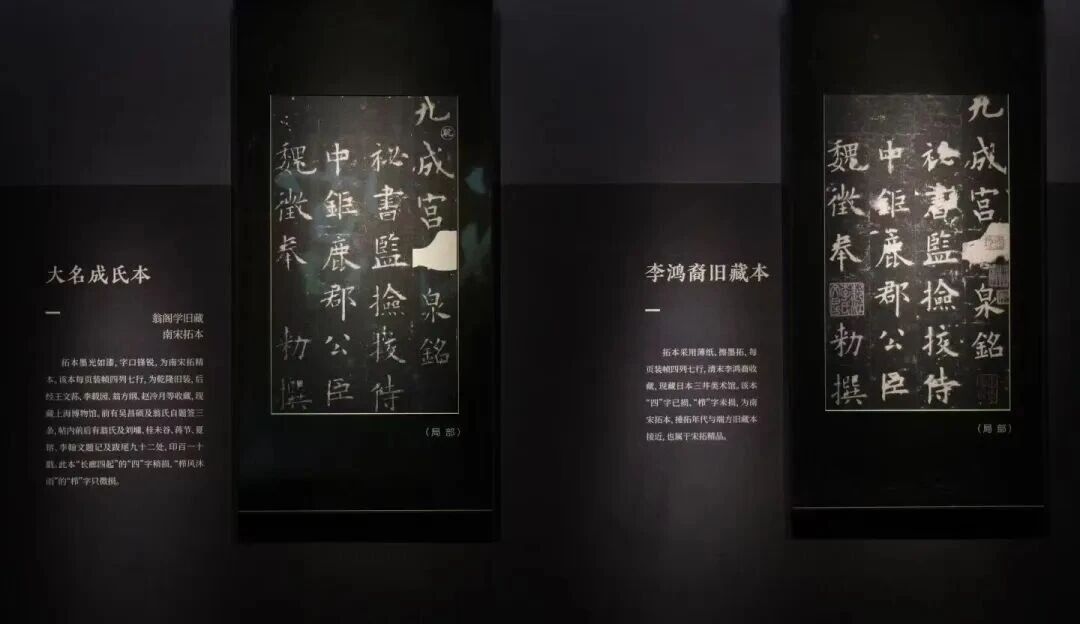 大名成氏本
翁阁学旧藏
南宋拓本
拓本墨光如漆,字口锋锐,为南宋拓精
本。该本每页装帧四列七行,为乾隆旧装,后
经王文荪、李载园、翁方纲、赵泠月等收藏,现
藏上海博物馆。前有吴昌硕及翁氏自题签三
条,帖内前后有翁氏及刘墉、桂未谷、蒋节、夏
、李翰文题记及跋尾九十二处,印百一十
戳。此本“长廊四起”的“四”字稍损,“栉风沐
雨”的“栉”字只微损。
九成宮 泉銘
祕書監撿挍侍
中鉅鹿郡公臣
魏徵奉 勅撰
(局 部)
李鸿裔旧藏本
拓本采用薄纸,擦墨拓,每
页装帧四列七行,清末李鸿裔收
藏,现藏日本三井美术馆。该本
“四”字已损,“栉”字未损,为南
宋拓本,捶拓年代与端方旧藏本
接近,也属于宋拓精品。
九成宮 泉銘
祕書監撿挍侍
中鉅鹿郡公臣
魏徵奉 勅撰
(局 部)